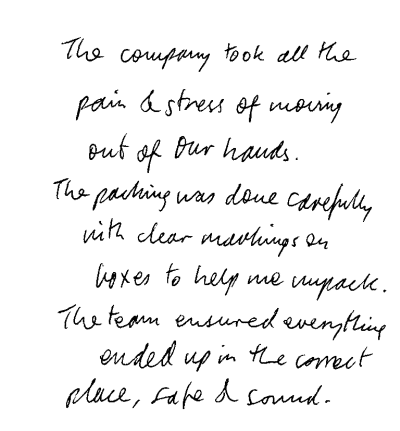 The company took all the
pain & stress of moving
out of Our hands.
The packing was done carefully
with clear markings on
boxes to help me unpack.
The team ensured everything
ended up in the correct
place, safe & sound.